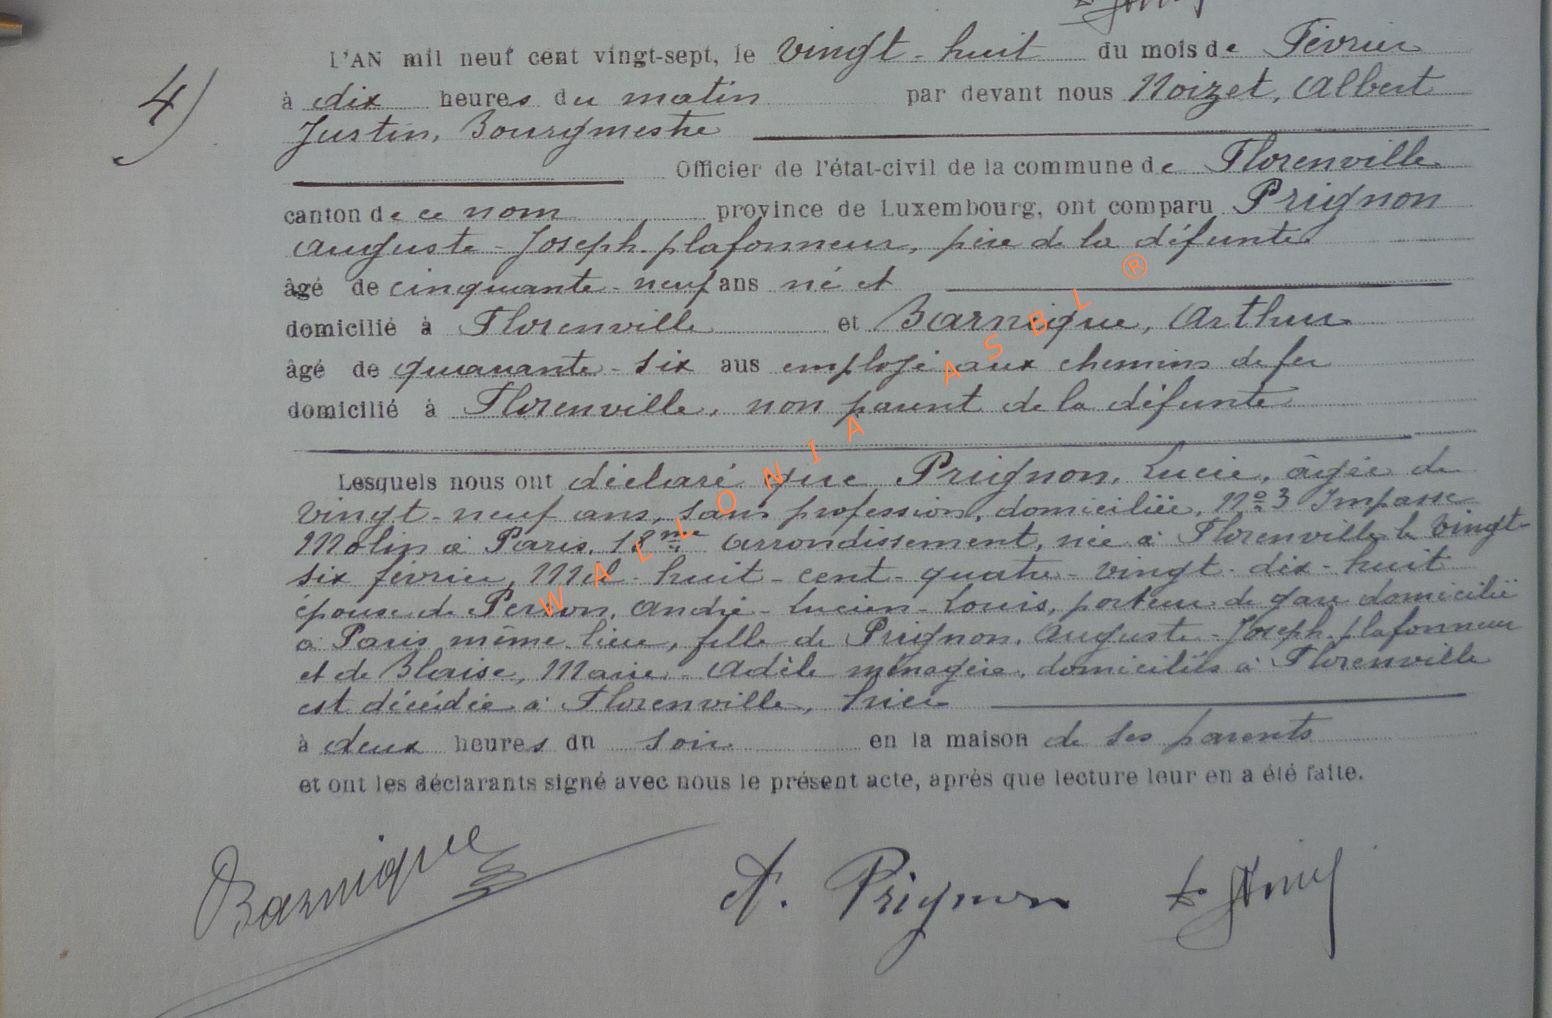 L'AN mil neuf cent vingt-sept, le Vingt-huit du mois de Février
4) à dix heures du matin par devant nous Noizet, Albert
Justin, Bourgmestre
Officier de l'état-civil de la commune de Florenville
canton de ce nom province de Luxembourg, ont comparu Prignon
Auguste-Joseph plafonneur, père de la défunte
âgé de cinquante-neuf ans né et
domicilié à Florenville et Barnique, Arthur
âgé de quarante-six ans employé aux chemins de fer
domicilié à Florenville, non parent de la défunte
Lesquels nous ont déclaré que Prignon, Lucie, âgée de
vingt-neuf ans, sans profession, domiciliée, No 3 Impasse
Molin à Paris, 18me arrondissement, née à Florenville le vingt-
six février, Mil-huit-cent-quatre-vingt-dix-huit
épouse de Perron, André-Lucien-Louis, porteur de gare domicilié
à Paris même lieu, fille de Prignon, Auguste-Joseph plafonneur
et de Blaise, Marie-Adèle ménagère, domiciliés à Florenville
est décédée à Florenville, hier
à deux heures du soir en la maison de ses parents
et ont les déclarants signé avec nous le présent acte, après que lecture leur en a été faite.
Barnique A. Prignon
WALLONIA ASBL ®